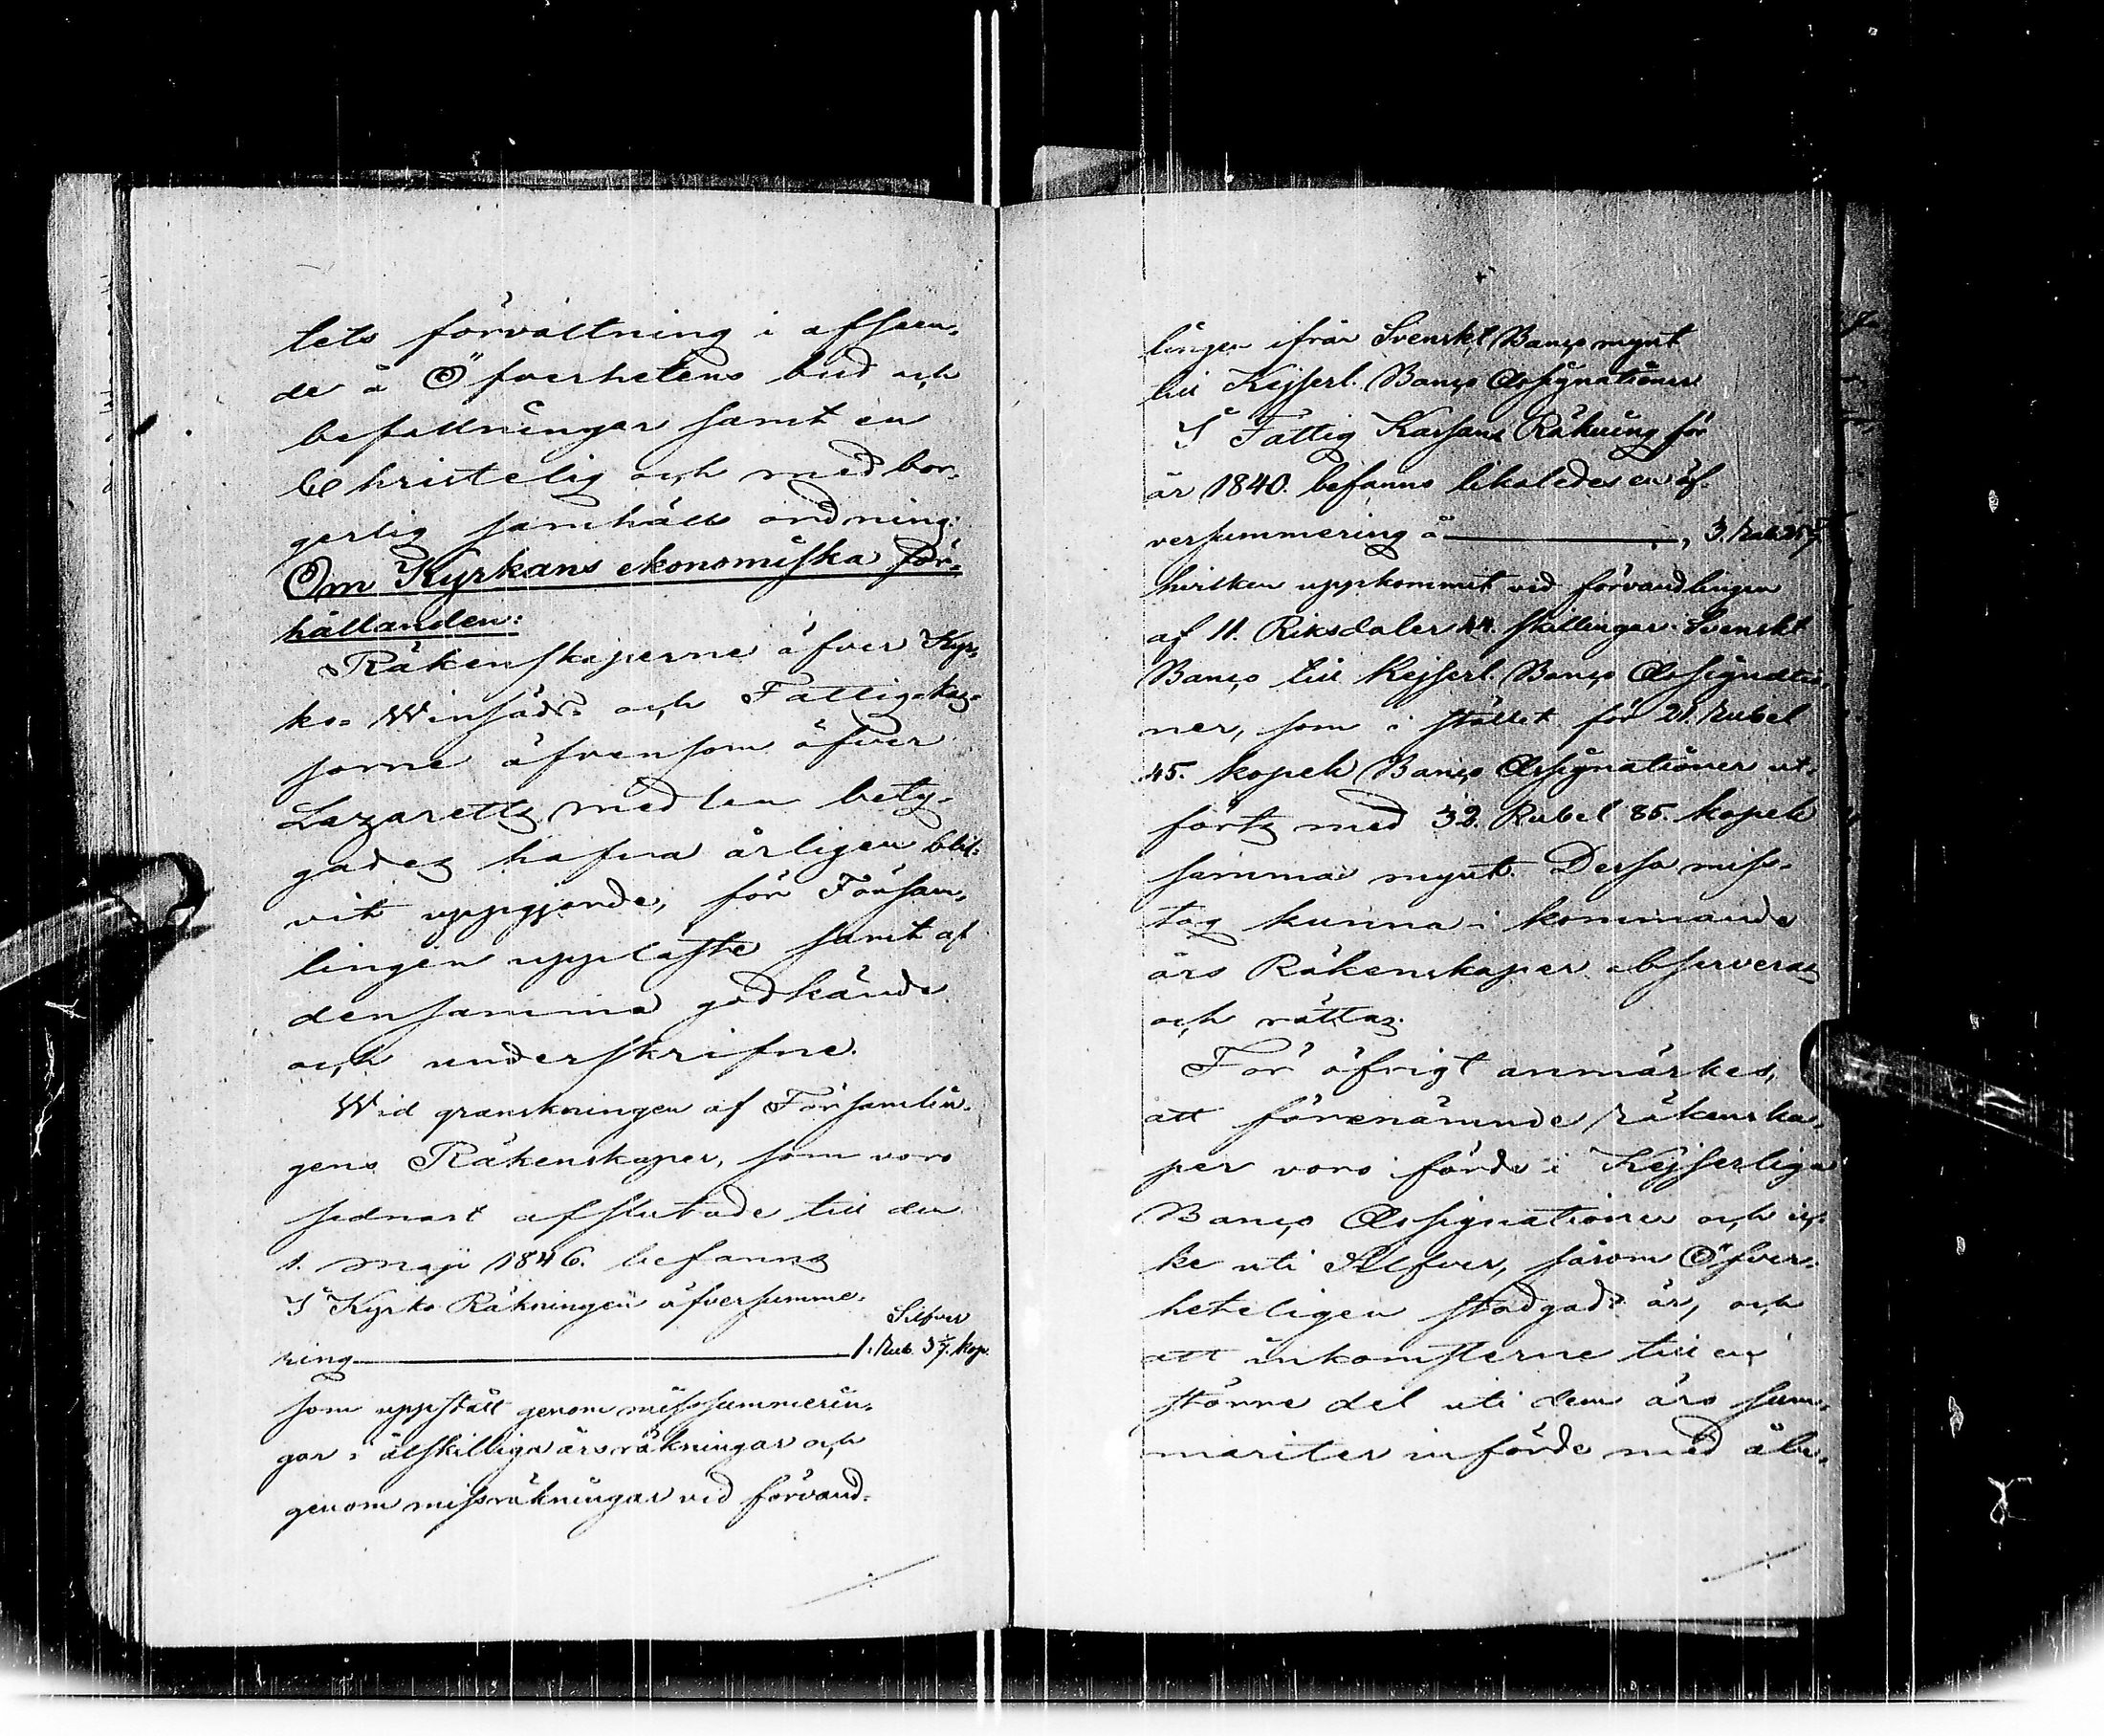 tets förvaltning i afseen-
de å Öfverhetens bud och
befallningar samt en
Christelig och medbor-
gerlig samhälls ordning.
Om Kyrkans ekonomiska för-
hållanden:
Räkenskaperne öfver Kyr-
ko- Winsäds- och Fattig-kas-
sorne äfvensom öfver
Lazaretts medlen bety-
gades hafva årligen blif-
vit uppgjorde, för Försam-
lingen uppläste samt af
densamma godkände
och underskrifne.
Wid granskningen af Församlin-
gens Räkenskaper, som voro
sednast afslutade till den
1. Maji 1846. befanns
I Kyrko Räkningen öfversumme-
Silfver
ring 1. Rub. 3 kop.
som uppstått genom missummerin-
gar i åtskilliga års räkningar och
genom missräkningar vid förvand-
lingen ifrån Svenskt Banco mynt
till Kejserl. Banco Assignationer
I Fattig Kassans Räkning för
år 1840. befanns likaledes en öf-
versummering å 3. Rub.
hvilken uppkommit vid förvandlingen
af 11. Riksdaler 44. skillingar Svenskt
Banco till Kejserl. Banco Assignatio-
ner, som i stället för 21. Rubel
45. kopek Banco Assignationer ut-
förts med 32. Rubel 85. kopek
samma mynt. Dessa miss-
tag kunna i kommande
års Räkenskaper observeras
och rättas.
För öfrigt anmärkes,
att förenämnde räkenska-
per voro förde i Kejserliga
Banco Assignationer och ic-
ke uti Silfver, såsom Öfver-
heteligen stadgadt är, och
att inkomsterne till en
större del uti dem äro sum-
mariter införde med åbe-